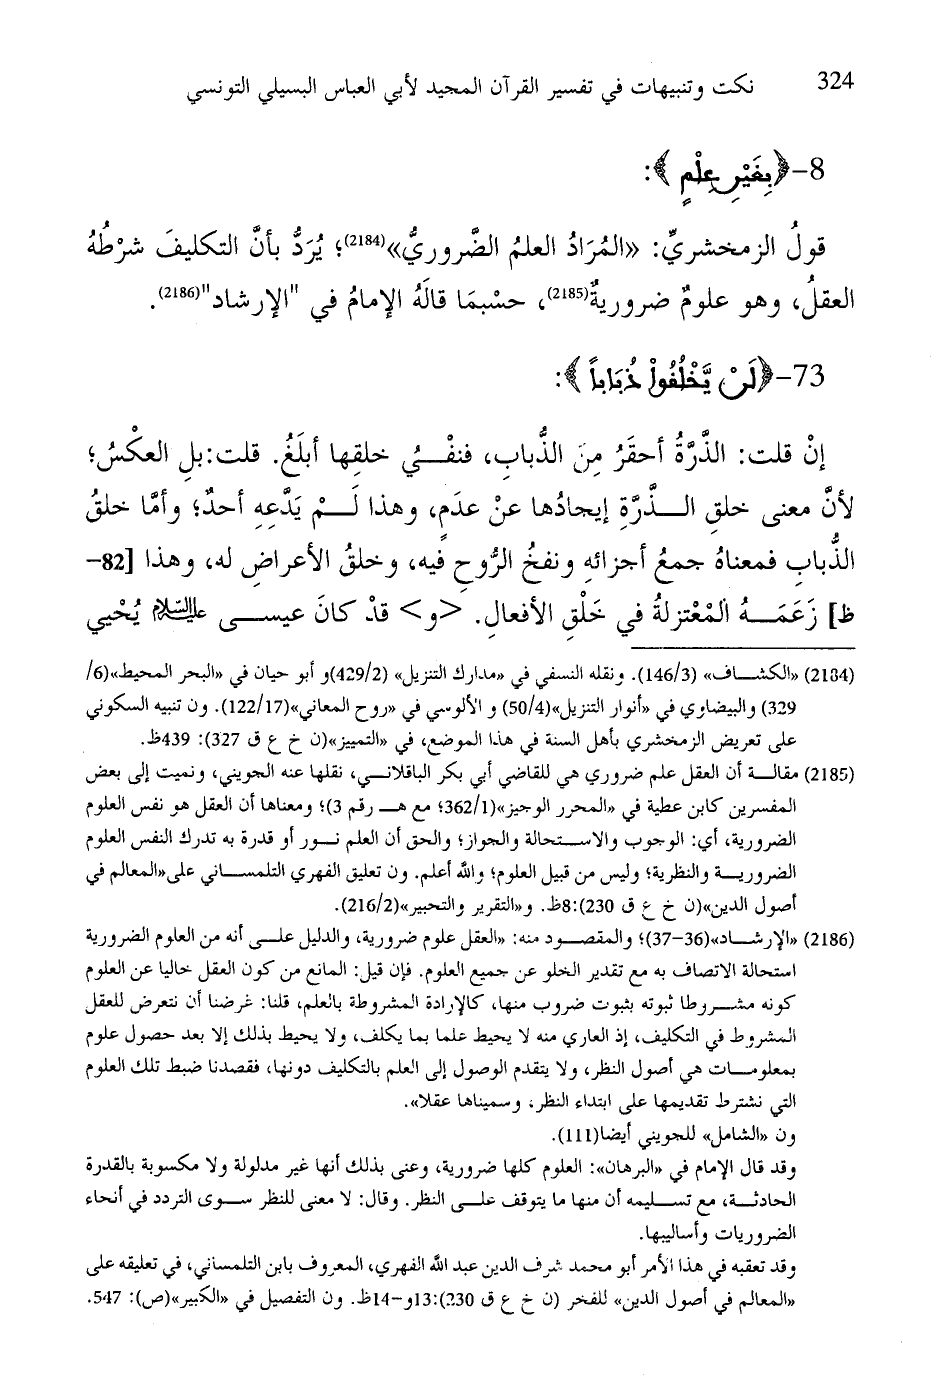 324 نكت وتنبيهات في تفسير القرآن المجيد لأبي العباس البسيلي التونسي
8-﴿بِغَيْرِ عِلْمٍ﴾:
قولُ الزمخشريِّ: «المُرَادُ العلمُ الضَّروريُّ»(2184)؛ يُرَدُّ بأنَّ التكليفَ شرْطُهُ
العقلُ، وهو علومٌ ضروريةٌ(2185)، حسْبمَا قالَهُ الإمامُ في "الإرشاد"(2186).
73-﴿لَنْ يَّخْلُقُواْ ذُبَاباً﴾:
إنْ قلت: الذَّرَّةُ أحقَرُ مِنَ الذُّبابِ، فنفْيُ خلقِها أبلَغُ. قلت:بل العكسُ؛
لأنَّ معنى خلقِ الذَّرَّةِ إيجادُها عنْ عدَمٍ، وهذا لَمْ يَدَّعِهِ أحدٌ؛ وأمَّا خلقُ
الذُّبابِ فمعناهُ جمعُ أجزائهِ ونفخُ الرُّوحِ فيه، وخلقُ الأعراضِ له، وهذا [82-
ظ] زَعَمَهُ الْمُعْتزلةُ في خَلْقِ الأفعالِ. <و> قدْ كانَ عيسى عليه السلام يُحْيي
(2184) «الكشاف» (146/3). ونقله النسفي في «مدارك التنزيل» (429/2)و أبو حيان في «البحر المحيط»(6/
329) والبيضاوي في «أنوار التنزيل»(50/4) و الألوسي في «روح المعاني»(122/17). ون تنبيه السكوني
على تعريض الزمخشري بأهل السنة في هذا الموضع، في «التمييز»(ن خ ع ق 327): 439ظ.
(2185) مقالة أن العقل علم ضروري هي للقاضي أبي بكر الباقلاني، نقلها عنه الجويني، ونميت إلى بعض
المفسرين كابن عطية في «المحرر الوجيز»(362/1؛ مع هـ رقم 3)؛ ومعناها أن العقل هو نفس العلوم
الضرورية، أي: الوجوب والاستحالة والجواز؛ والحق أن العلم نور أو قدرة به تدرك النفس العلوم
الضرورية والنظرية؛ وليس من قبيل العلوم؛ والله أعلم. ون تعليق الفهري التلمساني على«المعالم في
أصول الدين»(ن خ ع ق 230):8ظ. و«التقرير والتحبير»(216/2).
(2186) «الإرشاد»(36-37)؛ والمقصود منه: «العقل علوم ضرورية، والدليل على أنه من العلوم الضرورية
استحالة الاتصاف به مع تقدير الخلو عن جميع العلوم. فإن قيل: المانع من كون العقل خاليا عن العلوم
كونه مشروطا ثبوته بثبوت ضروب منها، كالإرادة المشروطة بالعلم، قلنا: غرضنا أن نتعرض للعقل
المشروط في التكليف، إذ العاري منه لا يحيط علما بما يكلف، ولا يحيط بذلك إلا بعد حصول علوم
بمعلومات هي أصول النظر، ولا يتقدم الوصول إلى العلم بالتكليف دونها، فقصدنا ضبط تلك العلوم
التي نشترط تقديمها على ابتداء النظر، وسميناها عقلا».
ون «الشامل» للجويني أيضا(111).
وقد قال الإمام في «البرهان»: العلوم كلها ضرورية، وعنى بذلك أنها غير مدلولة ولا مكسوبة بالقدرة
الحادثة، مع تسليمه أن منها ما يتوقف على النظر. وقال: لا معنى للنظر سوى التردد في أنحاء
الضروريات وأساليبها.
وقد تعقبه في هذا الأمر أبو محمد شرف الدين عبد الله الفهري، المعروف بابن التلمساني، في تعليقه على
«المعالم في أصول الدين» للفخر (ن خ ع ق 230):13و-14ظ. ون التفصيل في «الكبير»(ص): 547.